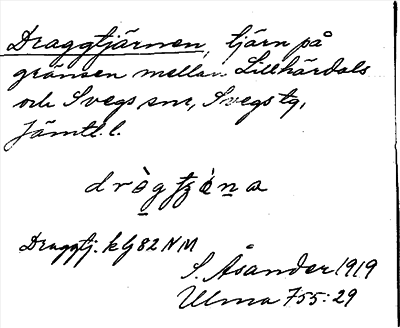 Draggtjärnen, tjärn på
gränsen mellan Lillhärdals
och Svegs snr, Svegs tg,
Jämtl. l.
Draggtj. kG 82 NM
S. Åsander 1919
Ulma 755:29